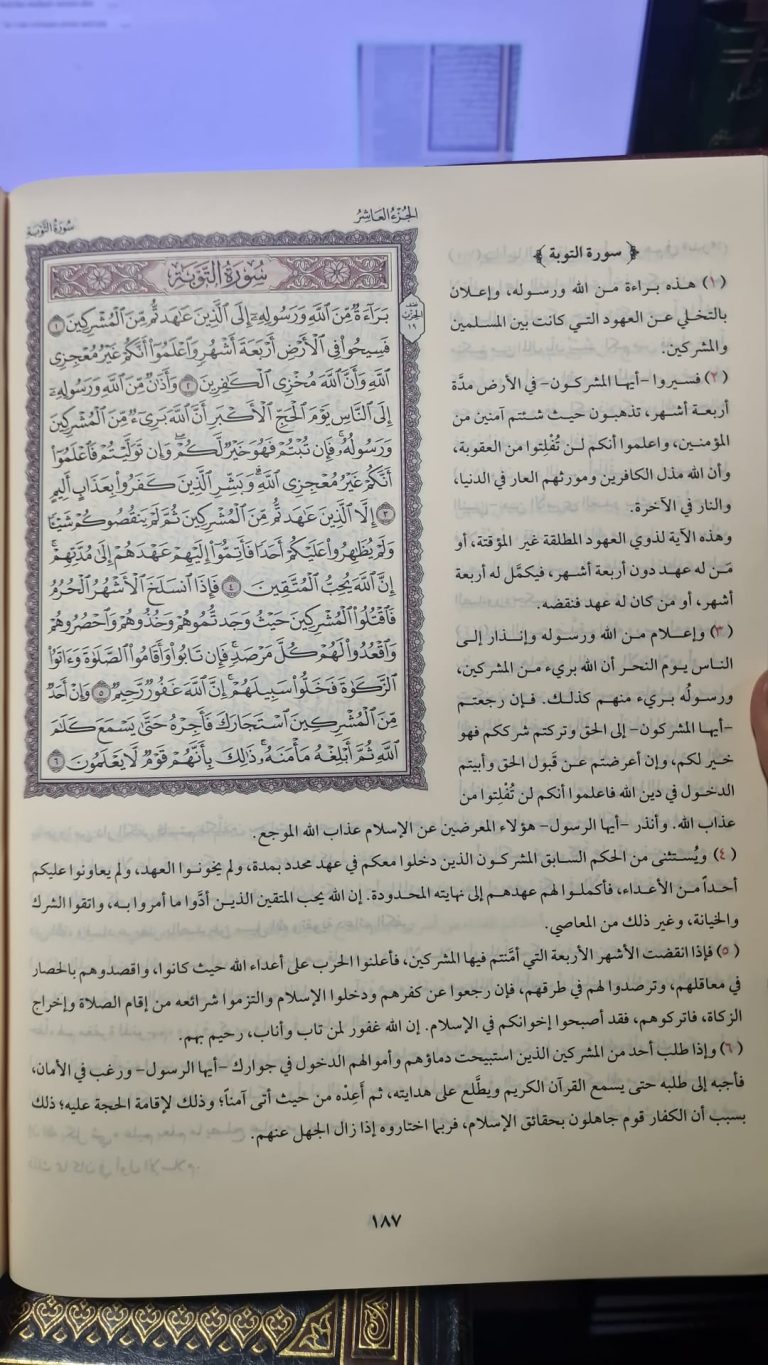 الجزء العاشر
سورة التوبة
سُورَةُ التَّوْبَةِ
بَرَآءَةٌ مِّنَ ٱللَّهِ وَرَسُولِهِۦٓ إِلَى ٱلَّذِينَ عَٰهَدتُّم مِّنَ ٱلْمُشْرِكِينَ ١
فَسِيحُوا۟ فِى ٱلْأَرْضِ أَرْبَعَةَ أَشْهُرٍ وَٱعْلَمُوٓا۟ أَنَّكُمْ غَيْرُ مُعْجِزِى
ٱللَّهِ وَأَنَّ ٱللَّهَ مُخْزِى ٱلْكَٰفِرِينَ ٢ وَأَذَٰنٌ مِّنَ ٱللَّهِ وَرَسُولِهِۦٓ
إِلَى ٱلنَّاسِ يَوْمَ ٱلْحَجِّ ٱلْأَكْبَرِ أَنَّ ٱللَّهَ بَرِىٓءٌ مِّنَ ٱلْمُشْرِكِينَ
وَرَسُولُهُۥ فَإِن تُبْتُمْ فَهُوَ خَيْرٌ لَّكُمْ وَإِن تَوَلَّيْتُمْ فَٱعْلَمُوٓا۟
أَنَّكُمْ غَيْرُ مُعْجِزِى ٱللَّهِ وَبَشِّرِ ٱلَّذِينَ كَفَرُوا۟ بِعَذَابٍ أَلِيمٍ
٣ إِلَّا ٱلَّذِينَ عَٰهَدتُّم مِّنَ ٱلْمُشْرِكِينَ ثُمَّ لَمْ يَنقُصُوكُمْ شَيْـًٔا
وَلَمْ يُظَٰهِرُوا۟ عَلَيْكُمْ أَحَدًا فَأَتِمُّوٓا۟ إِلَيْهِمْ عَهْدَهُمْ إِلَىٰ مُدَّتِهِمْ
إِنَّ ٱللَّهَ يُحِبُّ ٱلْمُتَّقِينَ ٤ فَإِذَا ٱنسَلَخَ ٱلْأَشْهُرُ ٱلْحُرُمُ
فَٱقْتُلُوا۟ ٱلْمُشْرِكِينَ حَيْثُ وَجَدتُّمُوهُمْ وَخُذُوهُمْ وَٱحْصُرُوهُمْ
وَٱقْعُدُوا۟ لَهُمْ كُلَّ مَرْصَدٍ فَإِن تَابُوا۟ وَأَقَامُوا۟ ٱلصَّلَوٰةَ وَءَاتَوُا۟
ٱلزَّكَوٰةَ فَخَلُّوا۟ سَبِيلَهُمْ إِنَّ ٱللَّهَ غَفُورٌ رَّحِيمٌ ٥ وَإِنْ أَحَدٌ
مِّنَ ٱلْمُشْرِكِينَ ٱسْتَجَارَكَ فَأَجِرْهُ حَتَّىٰ يَسْمَعَ كَلَٰمَ
ٱللَّهِ ثُمَّ أَبْلِغْهُ مَأْمَنَهُۥ ذَٰلِكَ بِأَنَّهُمْ قَوْمٌ لَّا يَعْلَمُونَ ٦
﴿ سورة التوبة ﴾
(١) هذه براءة من الله ورسوله، وإعلان
بالتخلي عن العهود التي كانت بين المسلمين
والمشركين.
(٢) فسيروا -أيها المشركون- في الأرض مدَّة
أربعة أشهر، تذهبون حيث شئتم آمنين من
المؤمنين، واعلموا أنكم لن تُفْلِتوا من العقوبة،
وأن الله مذل الكافرين ومورثهم العار في الدنيا،
والنار في الآخرة.
وهذه الآية لذوي العهود المطلقة غير المؤقتة، أو
مَن له عهد دون أربعة أشهر، فيكمَّل له أربعة
أشهر، أو من كان له عهد فنقضه.
(٣) وإعلام من الله ورسوله وإنذار إلى
الناس يوم النحر أن الله بريء من المشركين،
ورسولُه بريء منهم كذلك. فإن رجعتم
-أيها المشركون- إلى الحق وتركتم شرككم فهو
خير لكم، وإن أعرضتم عن قَبول الحق وأبيتم
الدخول في دين الله فاعلموا أنكم لن تُفْلِتوا من
عذاب الله. وأنذر -أيها الرسول- هؤلاء المعرضين عن الإسلام عذاب الله الموجع.
(٤) ويُستثنى من الحكم السابق المشركون الذين دخلوا معكم في عهد محدد بمدة، ولم يخونوا العهد، ولم يعاونوا عليكم
أحداً من الأعداء، فأكملوا لهم عهدهم إلى نهايته المحدودة. إن الله يحب المتقين الذين أدَّوا ما أمروا به، واتقوا الشرك
والخيانة، وغير ذلك من المعاصي.
(٥) فإذا انقضت الأشهر الأربعة التي أمَّنتم فيها المشركين، فأعلنوا الحرب على أعداء الله حيث كانوا، واقصدوهم بالحصار
في معاقلهم، وترصدوا لهم في طرقهم، فإن رجعوا عن كفرهم ودخلوا الإسلام والتزموا شرائعه من إقام الصلاة وإخراج
الزكاة، فاتركوهم، فقد أصبحوا إخوانكم في الإسلام. إن الله غفور لمن تاب وأناب، رحيم بهم.
(٦) وإذا طلب أحد من المشركين الذين استبيحت دماؤهم وأموالهم الدخول في جوارك -أيها الرسول- ورغب في الأمان،
فأجبه إلى طلبه حتى يسمع القرآن الكريم ويطَّلع على هدايته، ثم أَعِدْه من حيث أتى آمناً؛ وذلك لإقامة الحجة عليه؛ ذلك
بسبب أن الكفار قوم جاهلون بحقائق الإسلام، فربما اختاروه إذا زال الجهل عنهم.
١٨٧